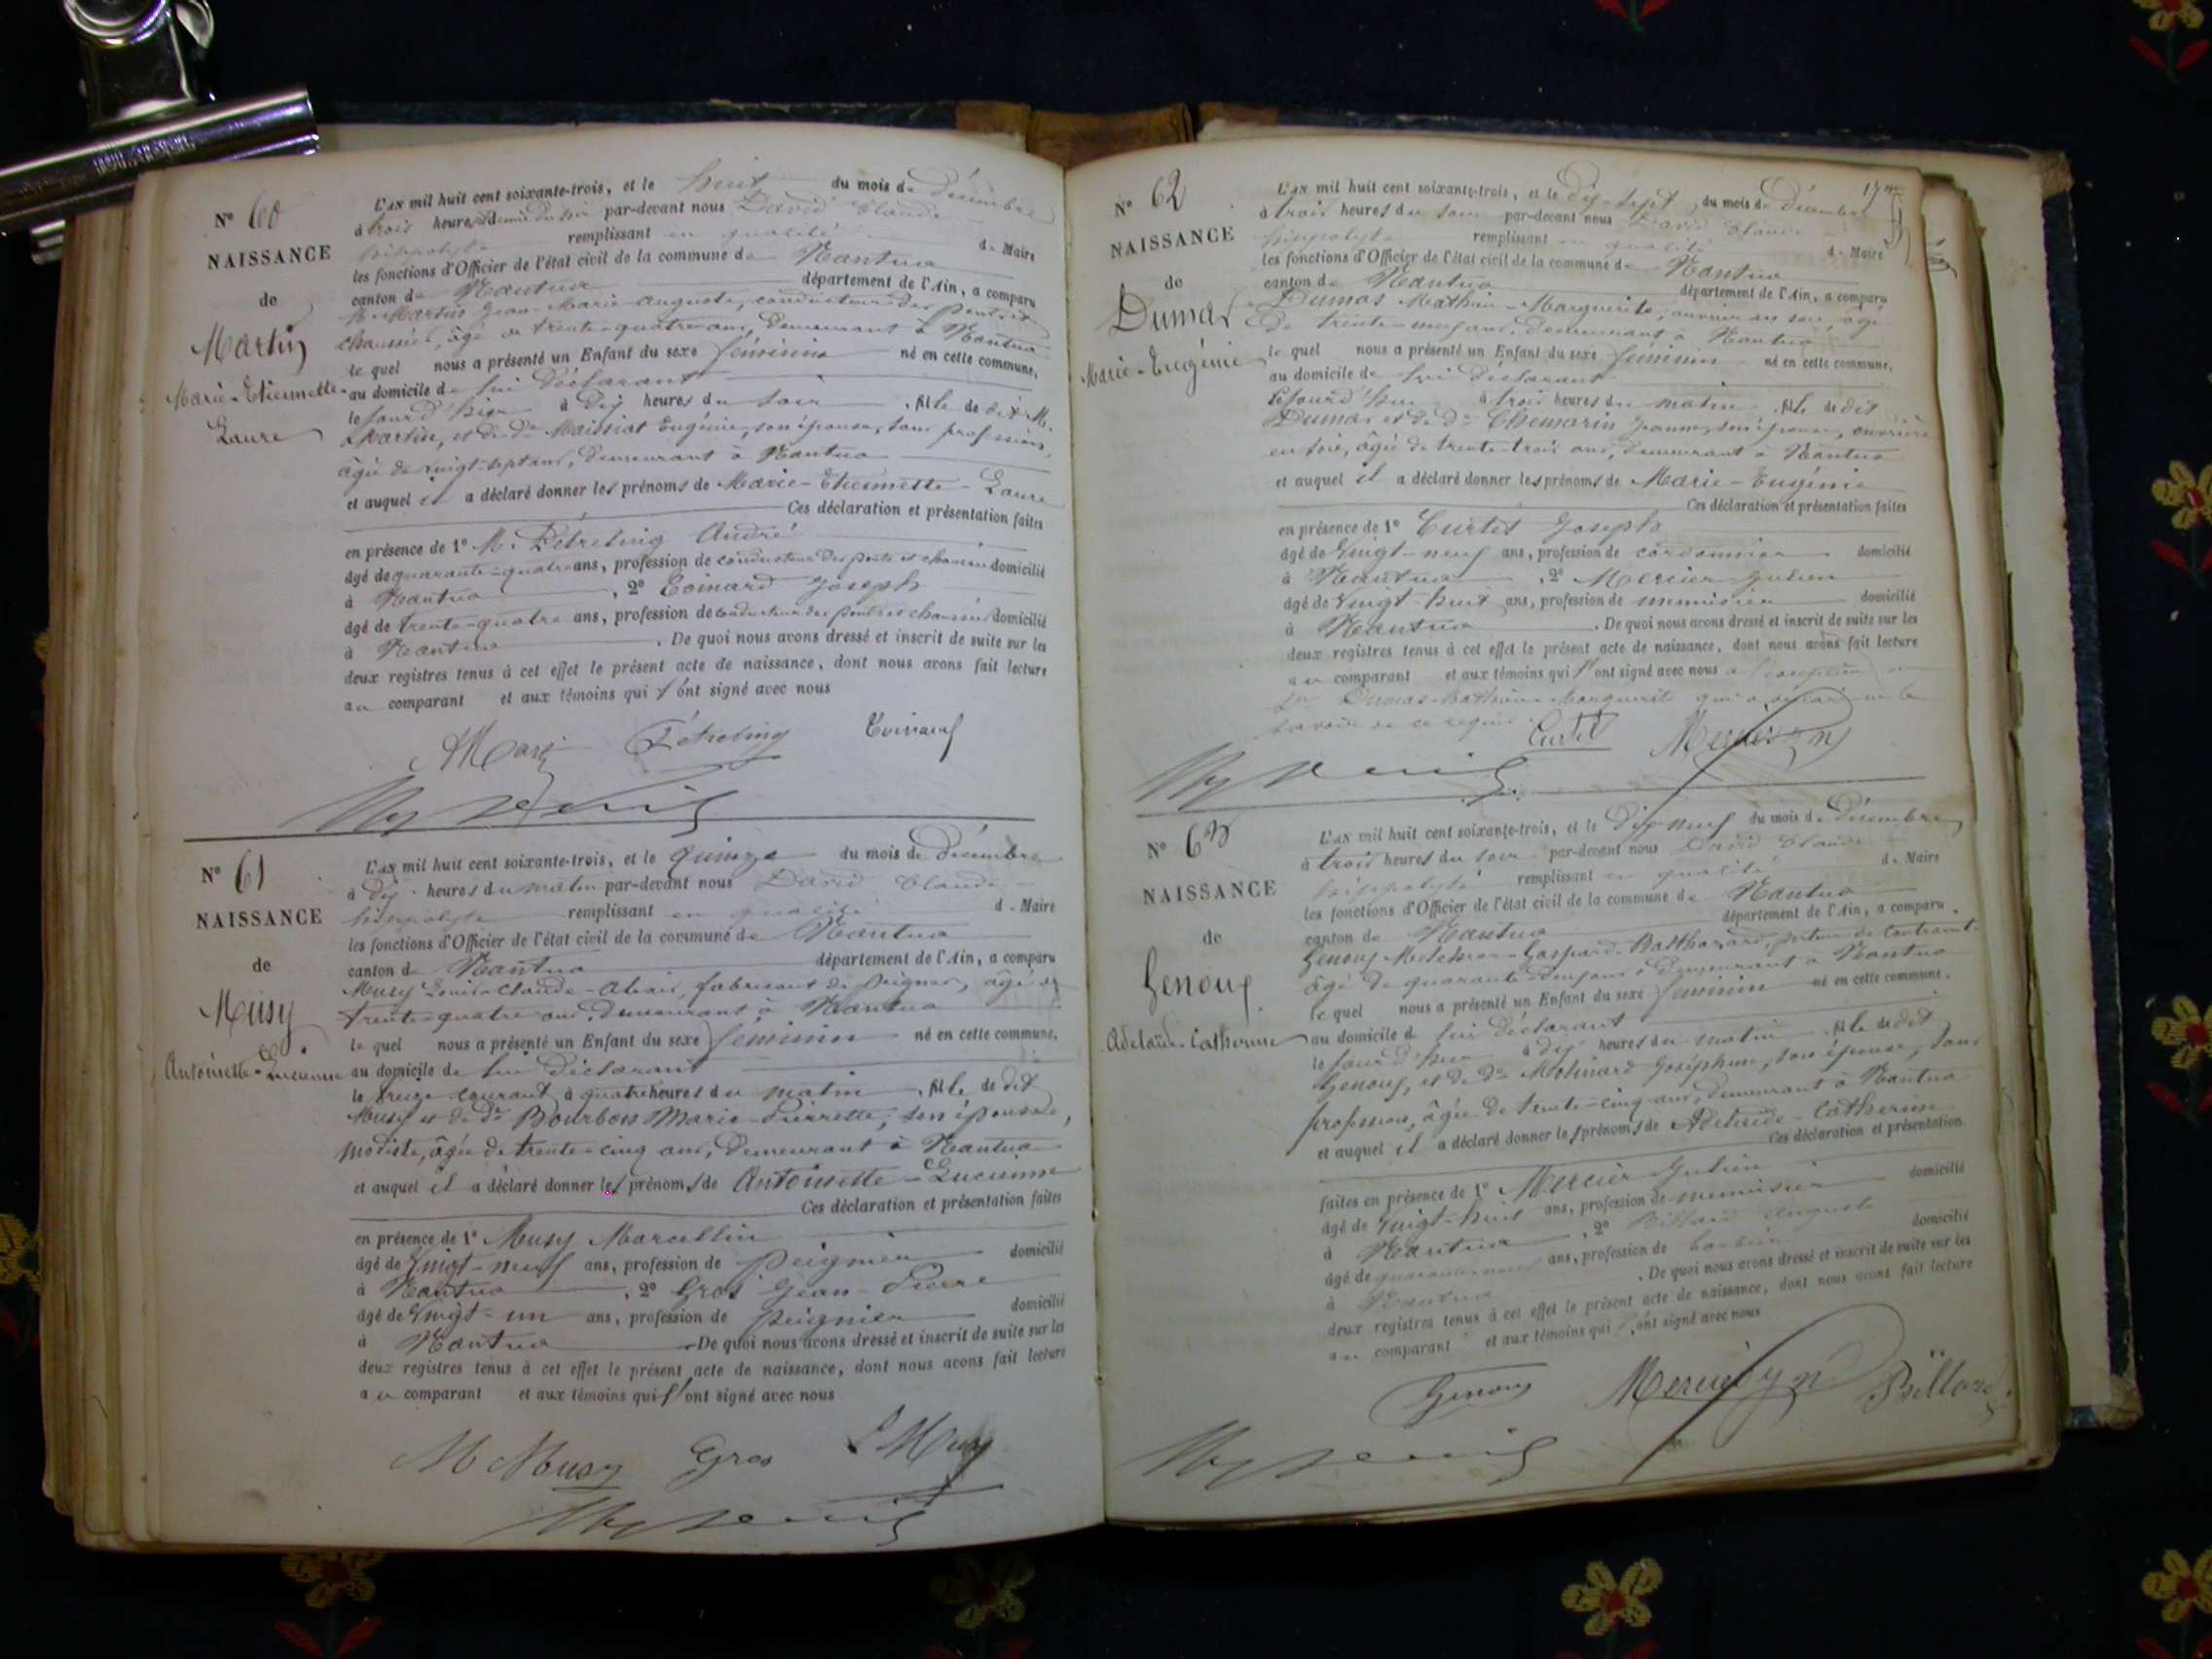 N° 60
NAISSANCE
de
Martin
Marie-Etiennette
Laure
L'AN mil huit cent soixante-trois, et le huit du mois de Décembre
à trois heures & demie du soir par-devant nous David Claude
hippolyte remplissant en qualité de Maire
les fonctions d'Officier de l'état civil de la commune de Nantua
canton de Nantua département de l'Ain, a comparu
M. Martin Jean-Marie-auguste, conducteur des ponts et
chaussées, âgé de trente-quatre ans, demeurant à Nantua
le quel nous a présenté un Enfant du sexe féminin né en cette commune,
au domicile de lui déclarant
le jour d'hier à dix heures du soir, fille de dit M.
Martin, et de de Maissiat Eugénie, son épouse, sans profession,
âgée de vingt-sept ans, demeurant à Nantua
et auquel il a déclaré donner les prénoms de Marie-Etiennette-Laure
Ces déclaration et présentation faites
en présence de 1° M. Pétreling André
âgé de quarante-quatre ans, profession de conducteur des ponts et chaussées domicilié
à Nantua, 2° Coinard Joseph
âgé de trente-quatre ans, profession de conducteur des ponts et chaussées domicilié
à Nantua. De quoi nous avons dressé et inscrit de suite sur les
deux registres tenus à cet effet le présent acte de naissance, dont nous avons fait lecture
au comparant et aux témoins qui l'ont signé avec nous
N° 61
NAISSANCE
de
Musy
Antoinette-Lucienne
L'AN mil huit cent soixante-trois, et le quinze du mois de décembre
à dix heures du matin par-devant nous David Claude
hippolyte remplissant en qualité de Maire
les fonctions d'Officier de l'état civil de la commune de Nantua
canton de Nantua département de l'Ain, a comparu
Musy Louis-Claude- fabricant de peignes, âgé de
trente-quatre ans, demeurant à Nantua
le quel nous a présenté un Enfant du sexe féminin né en cette commune,
au domicile de lui déclarant
le treize courant à quatre heures du matin, fille de dit
Musy et de de Bourbon Marie-Pierrette, son épouse,
modiste, âgée de trente-cinq ans, demeurant à Nantua
et auquel il a déclaré donner les prénoms de Antoinette-Lucienne
Ces déclaration et présentation faites
en présence de 1° Musy Marcellin
âgé de vingt-neuf ans, profession de peignier domicilié
à Nantua, 2° Gros Jean-Pierre
âgé de vingt-un ans, profession de peignier domicilié
à Nantua De quoi nous avons dressé et inscrit de suite sur les
deux registres tenus à cet effet le présent acte de naissance, dont nous avons fait lecture
au comparant et aux témoins qui l'ont signé avec nous
M Musy Gros L Musy
N° 62
NAISSANCE
de
Dumas
Marie-Eugénie
L'AN mil huit cent soixante-trois, et le dix-sept, du mois de décembre
à trois heures du soir par-devant nous David Claude
hippolyte remplissant en qualité de Maire
les fonctions d'Officier de l'état civil de la commune de Nantua
canton de Nantua département de l'Ain, a comparu
Dumas Mathieu-Marguerite, ouvrier en soie, âgé
de trente-neuf ans, demeurant à Nantua
le quel nous a présenté un Enfant du sexe féminin né en cette commune,
au domicile de lui déclarant
le jour d'hui à trois heures du matin, fille de dit
Dumas et de de Chemarin Jeanne, son épouse, ouvrière
en soie, âgée de trente-trois ans, demeurant à Nantua
et auquel il a déclaré donner les prénoms de Marie-Eugénie
Ces déclaration et présentation faites
en présence de 1° Curtet Joseph
âgé de vingt-neuf ans, profession de cordonnier domicilié
à Nantua, 2° Mercier Julien
âgé de vingt-huit ans, profession de menuisier domicilié
à Nantua. De quoi nous avons dressé et inscrit de suite sur les
deux registres tenus à cet effet le présent acte de naissance, dont nous avons fait lecture
au comparant et aux témoins qui l'ont signé avec nous à l'exception du
Sr Dumas Mathieu-Marguerite qui a déclaré ne le
savoir de ce requis
Curtet Mercier
N° 63
NAISSANCE
de
Genoux
Adelaïde-Catherine
L'AN mil huit cent soixante-trois, et le dix-neuf du mois de décembre
à trois heures du soir par-devant nous David Claude
hippolyte remplissant en qualité de Maire
les fonctions d'Officier de l'état civil de la commune de Nantua
canton de Nantua département de l'Ain, a comparu
Genoux Melchior-Gaspard-Balthazard, porteur de contrainte
âgé de quarante-deux ans, demeurant à Nantua
le quel nous a présenté un Enfant du sexe féminin né en cette commune,
au domicile de lui déclarant
le jour d'hui à dix heures du matin, fille de dit
Genoux, et de de Molinard Joséphine, son épouse, sans
profession, âgée de trente-cinq ans, demeurant à Nantua
et auquel il a déclaré donner les prénoms de Adélaïde-Catherine
Ces déclaration et présentation
faites en présence de 1° Mercier Julien
âgé de vingt-huit ans, profession de menuisier domicilié
à Nantua, 2° Billard Auguste
âgé de quarante-neuf ans, profession de barbier domicilié
à Nantua. De quoi nous avons dressé et inscrit de suite sur les
deux registres tenus à cet effet le présent acte de naissance, dont nous avons fait lecture
au comparant et aux témoins qui l'ont signé avec nous
Genoux Mercier Billard